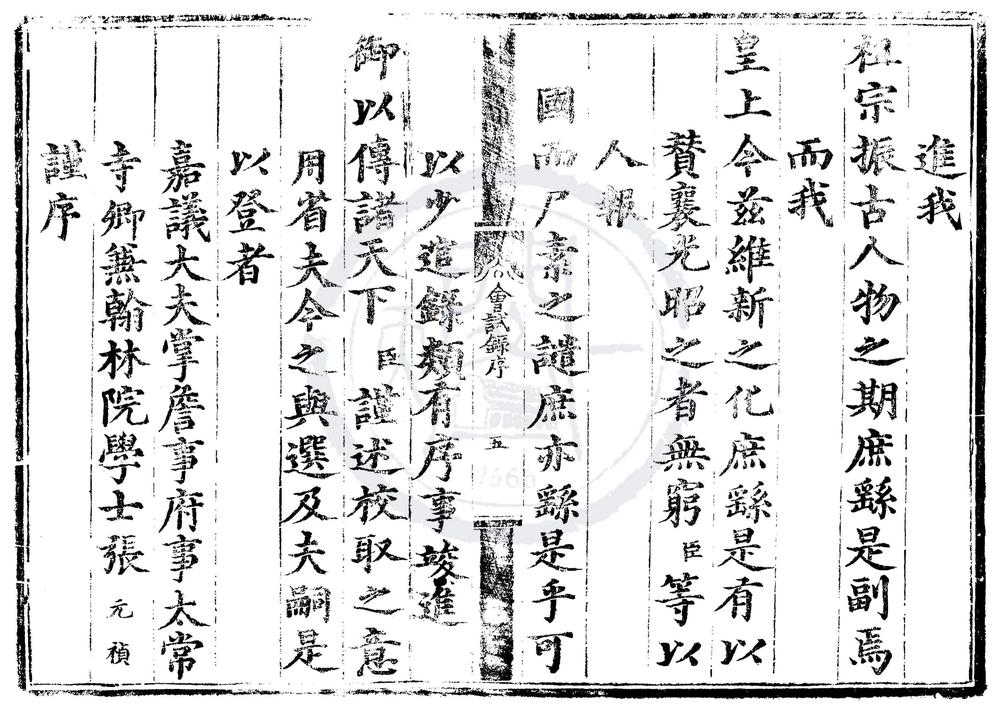 進我
祖宗振古人物之期庶繇是副焉
而我
皇上今茲維新之化庶繇是有以
贊襄光昭之者無窮臣等以
人報
國而尸素之譴庶亦繇是乎可
會試錄序
五
以少逭錄類有序事竣進
御以傳諸天下臣謹述校取之意
用省夫今之與選及夫嗣是
以登者
嘉議大夫掌詹事府事太常
寺卿兼翰林院學士張元禎
謹序